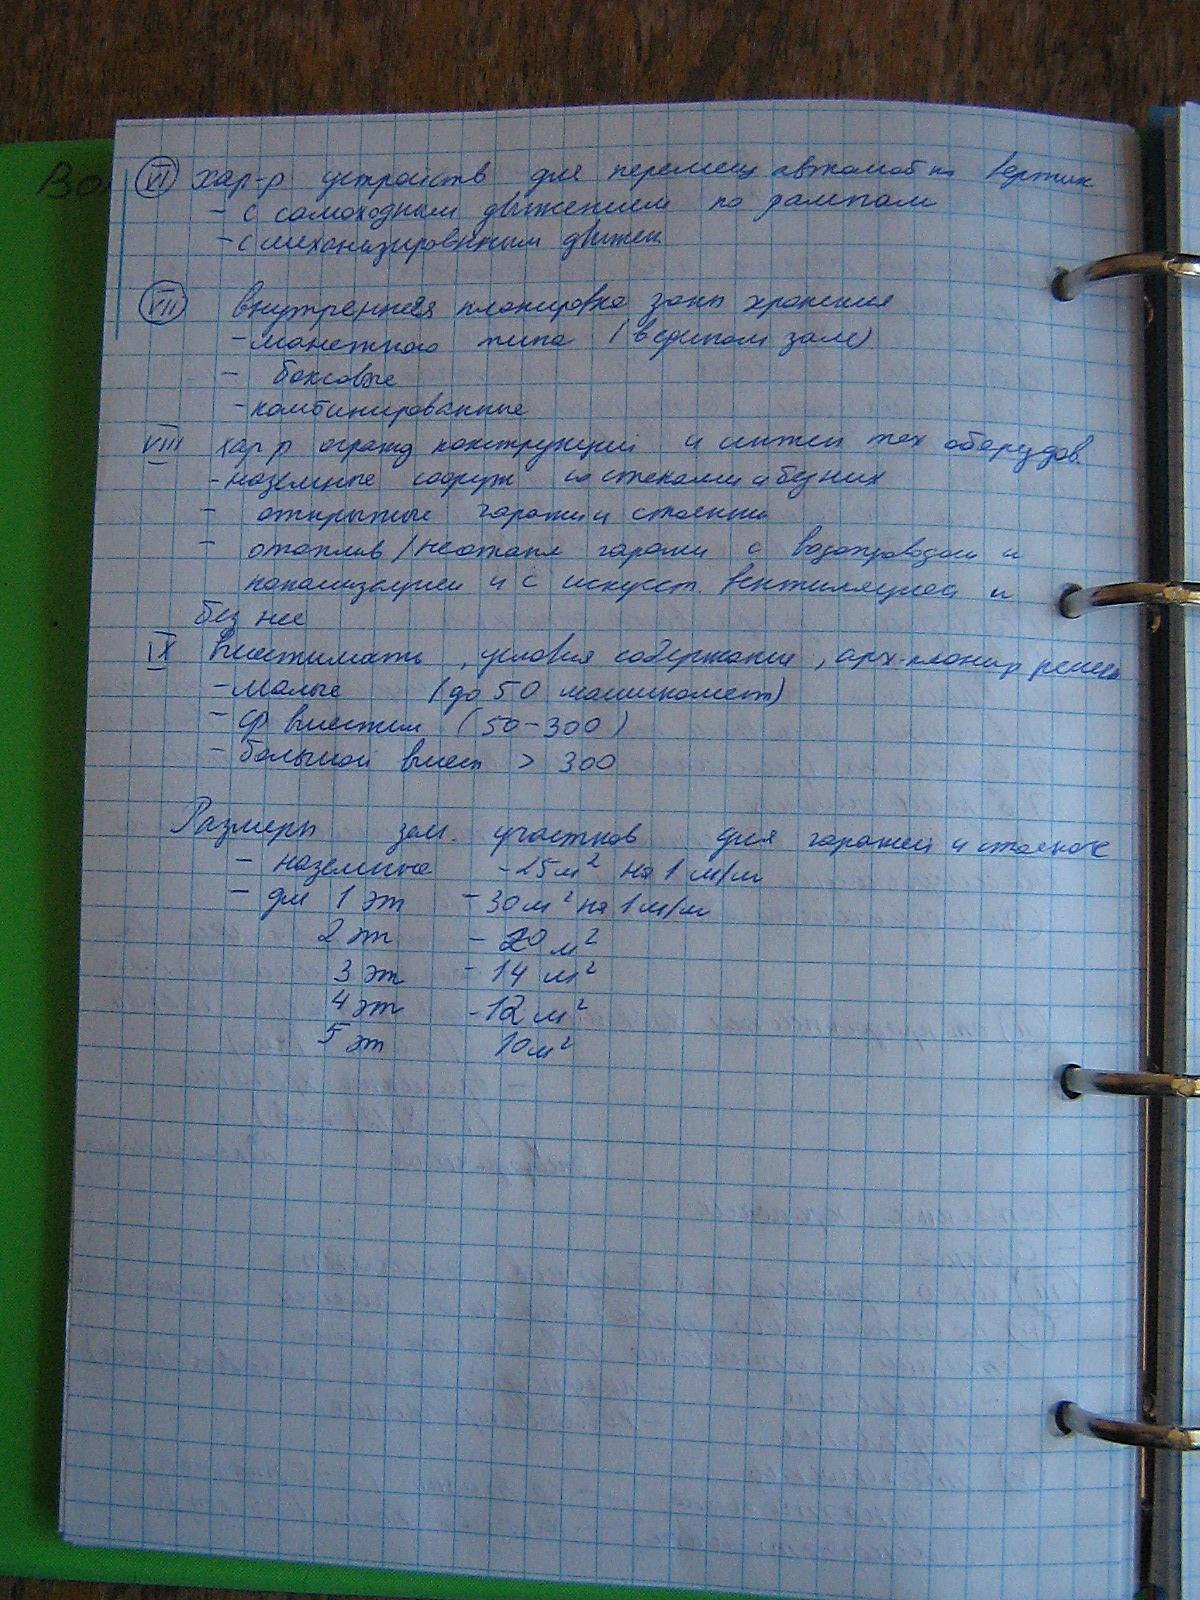 Во
VI хар-р устройств для перемещ автомоб по вертик
- с самоходным движением по рампам
- с механизированным движен
VII внутренняя планировка зоны хранения
- манежного типа (в едином зале)
- боксовые
- комбинированные
VIII хар р огражд конструкций и инжен тех оборудов.
- наземные сооруж со стенами и без них
- открытые гаражи и стоянки
- отаплив/неотапл гаражи с водопроводом и
канализацией и с искуст. вентиляцией и
без нее
IX Вместимость, условия содержания, арх-планир решен
- малые (до 50 машиномест)
- ср вместим (50-300)
- большой вмест > 300
Размеры зем. участков для гаражей и стоянок
- наземные - 25 м² на 1 м/м
- для 1 эт - 30 м² на 1 м/м
2 эт - 20 м²
3 эт - 14 м²
4 эт - 12 м²
5 эт 10 м²